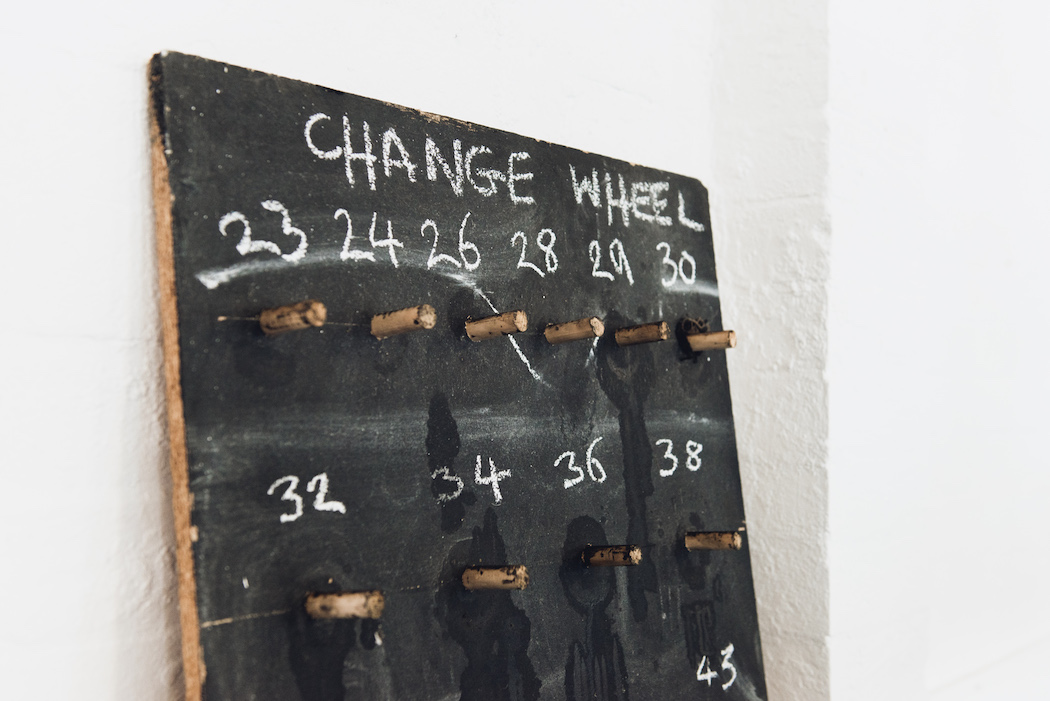 CHANGE WHEEL
23 24 26 28 29 30
32 34 36 38
43